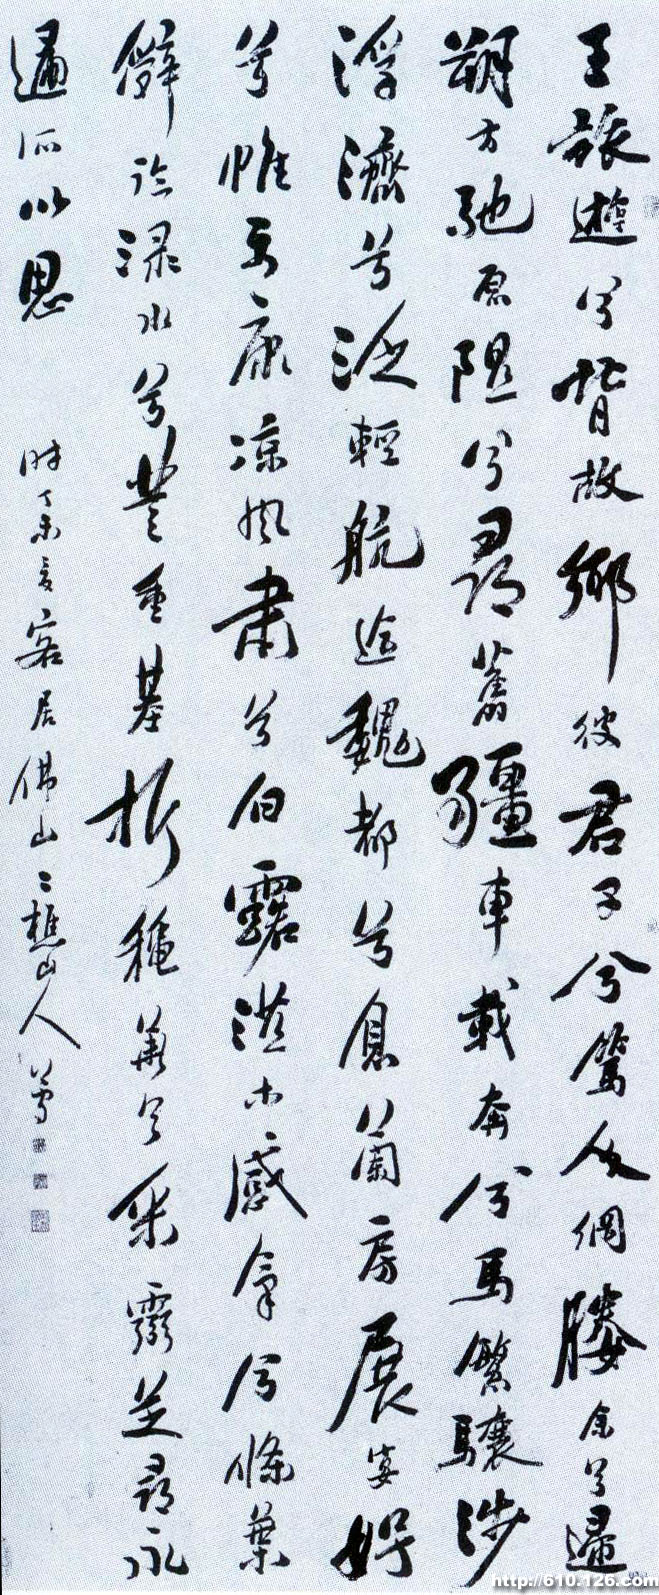 王旅遊兮背故鄉彼君子兮篤人綱媵余兮歸
朔方馳原隰兮尋舊疆車載奔兮馬繁驤涉
浮濟兮泛輕航迨魏都兮息蘭房展宴好
兮惟樂康凉風肅兮白露滋木感氣兮條葉
辭臨渌水兮登重基折穐華兮采靈芝尋永
所以思
時丁未夏客居佛山二樵山人簡
http://610.126.com